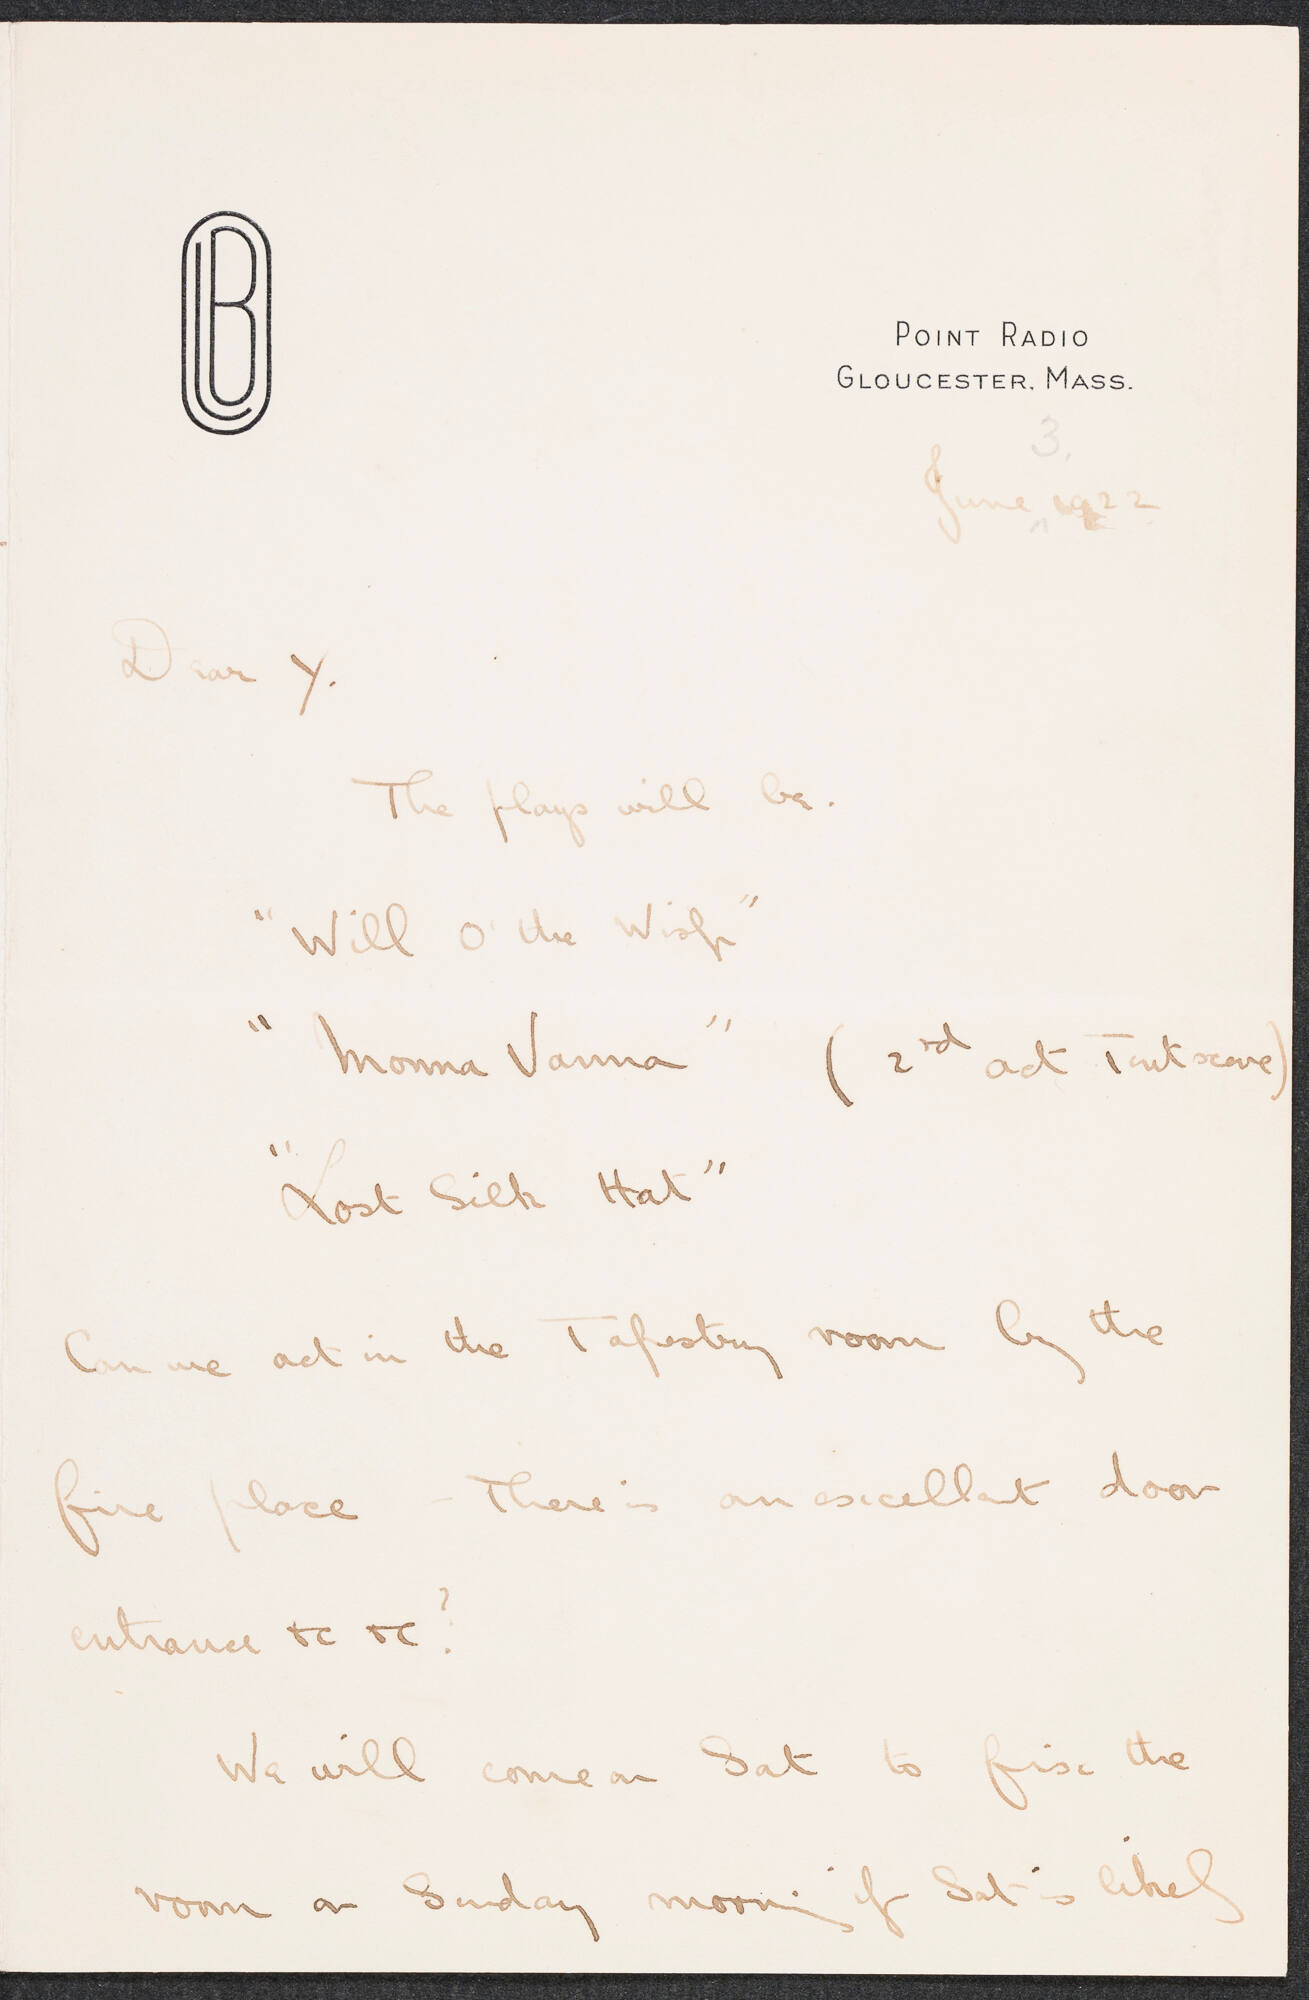 B
POINT RADIO
GLOUCESTER, MASS.
3.
June 1922
Dear Y.
The plays will be.
"Will O' the Wisp"
"Monna Vanna" (2nd act Tent scene)
"Lost Silk Hat"
Can we act in the Tapestry room by the
fire place - There is an excellent door
entrance &c &c?
We will come on Sat to fix the
room or Sunday morning if Sat is likely